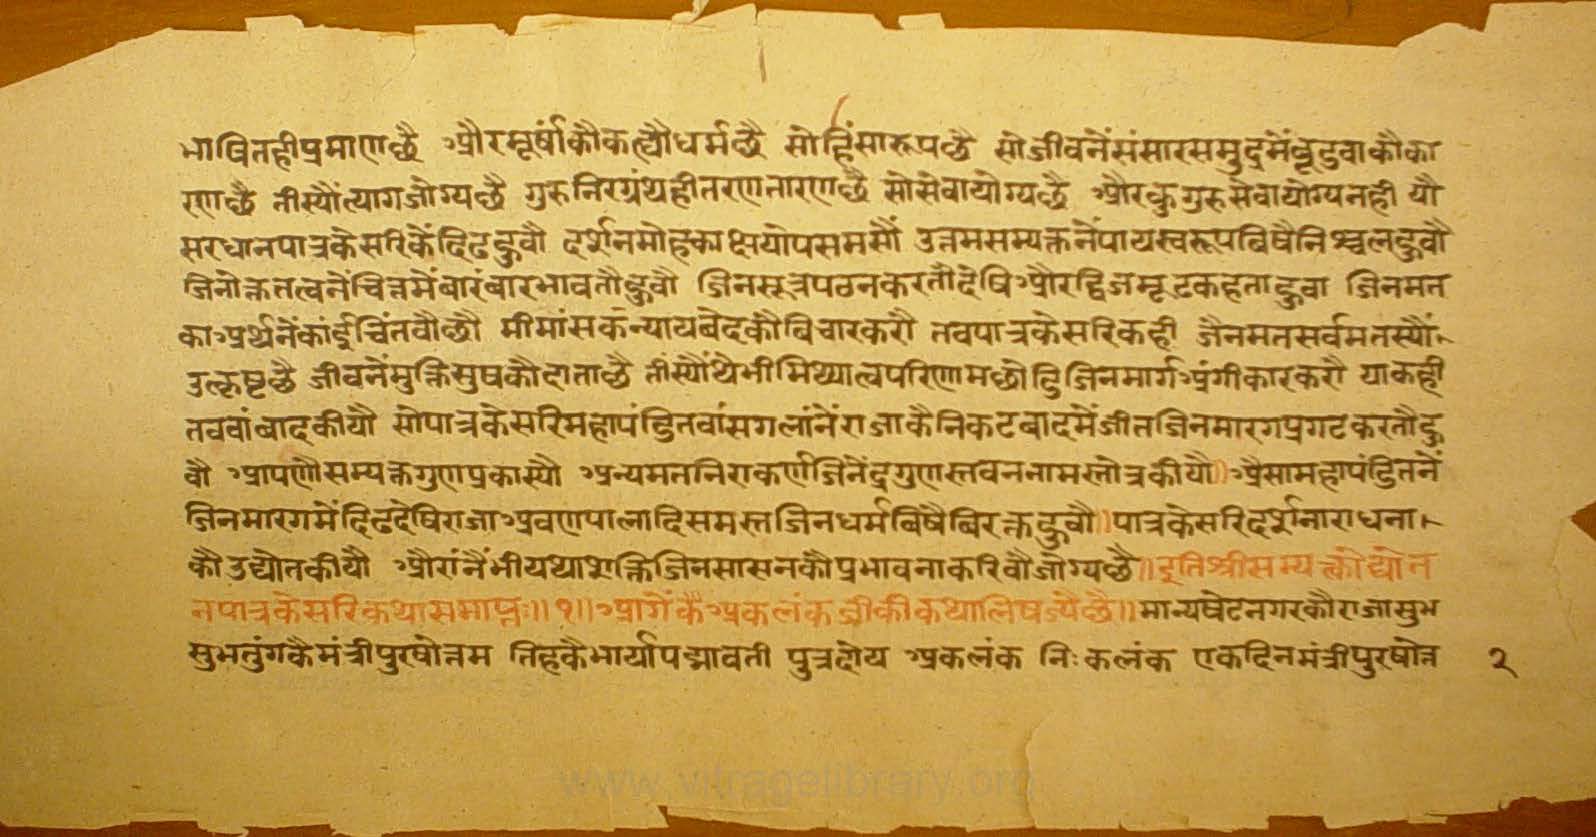 भाषितहीप्रमाणछै औरमूर्षांकौकह्यौधर्मछै सोहिंसारूपछै सोजीवनेंसंसारसमुद्रमेंबूडवाकौका
रणछै तीस्यौंत्यागजोग्यछै गुरुनिरग्रंथहीतरणतारणछै सोसेवायोग्यछै औरकुगुरुसेवायोग्यनही यौ
सरधानपात्रकेसरिकेंदिढहुवौ दर्शनमोहकाक्षयोपसमसौं उत्तमसम्यक्तनेंपायस्वरूपबिषैनिश्चलहुवौ
जिनोक्ततत्वनेंचित्तमेंबारंबारभावतौहुवौ जिनसूत्रपठनकरतौदेषिऔरद्विजमूढकहताहुवा जिनमत
काअर्थनेंकांईचिंतवौछौ मीमांसकन्यायबेदकौबिचारकरौ तवपात्रकेसरिकही जैनमतसर्वमतस्यौं
उत्कृष्टछै जीवनेंमुक्तिसुषकौदाताछै तीस्यौंथेभीमिथ्यात्वपरिणामछोडिजिनमार्गअंगीकारकरौ याकही
तववांबादकीयौ सोपात्रकेसरिमहापंडितवांसगलांनेंराजाकैनिकटबादमेंजीतजिनमारगप्रगटकरतौहु
वौ आपणौसम्यक्तगुणप्रकास्यौ अन्यमतनिराकर्णजिनेंद्रगुणस्तवननामस्तोत्रकीयौ॥ऐसामहापंडितनें
जिनमारगमेंदिढदेषिराजाअवणपालादिसमस्तजिनधर्मबिंषैबिरक्तहुवौ॥पात्रकेसरिदर्शनाराधना
कौउद्योतकीयौ औरांनैंभीयथाशक्तिजिनसासनकौप्रभावनाकरिवौजोग्यछै॥इतिश्रीसम्यक्तोद्योत
नपात्रकेसरिकथासमाप्तः॥१॥आगेंकैअकलंकजीकीकथालिषज्यैछै॥मान्यषेटनगरकौराजासुभ
सुभतुंगकैमंत्रीपुरषोत्तम तिहकैभार्यापद्मावती पुत्रदोय अकलंक निःकलंक एकदिनमंत्रीपुरषोत्त
२
www.vitragelibrary.org